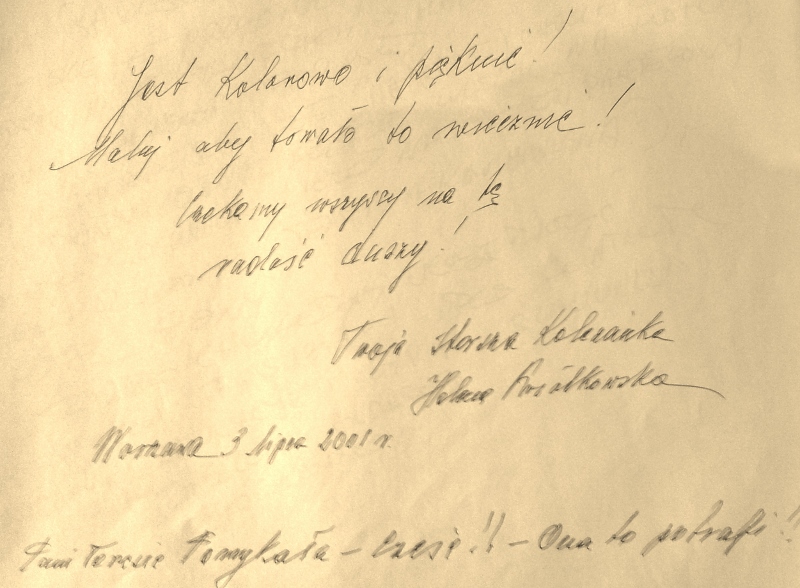 Jest Kolorowo i pięknie!
Maluj aby trwało to wiecznie!
Czekamy wszyscy na tę
radość duszy!
Twoja starsza Koleżanka
Helena
Warszawa 3 lipca 2001 r.
Pani Teresie Pomykała – Cześć!! – Ona to potrafi!!